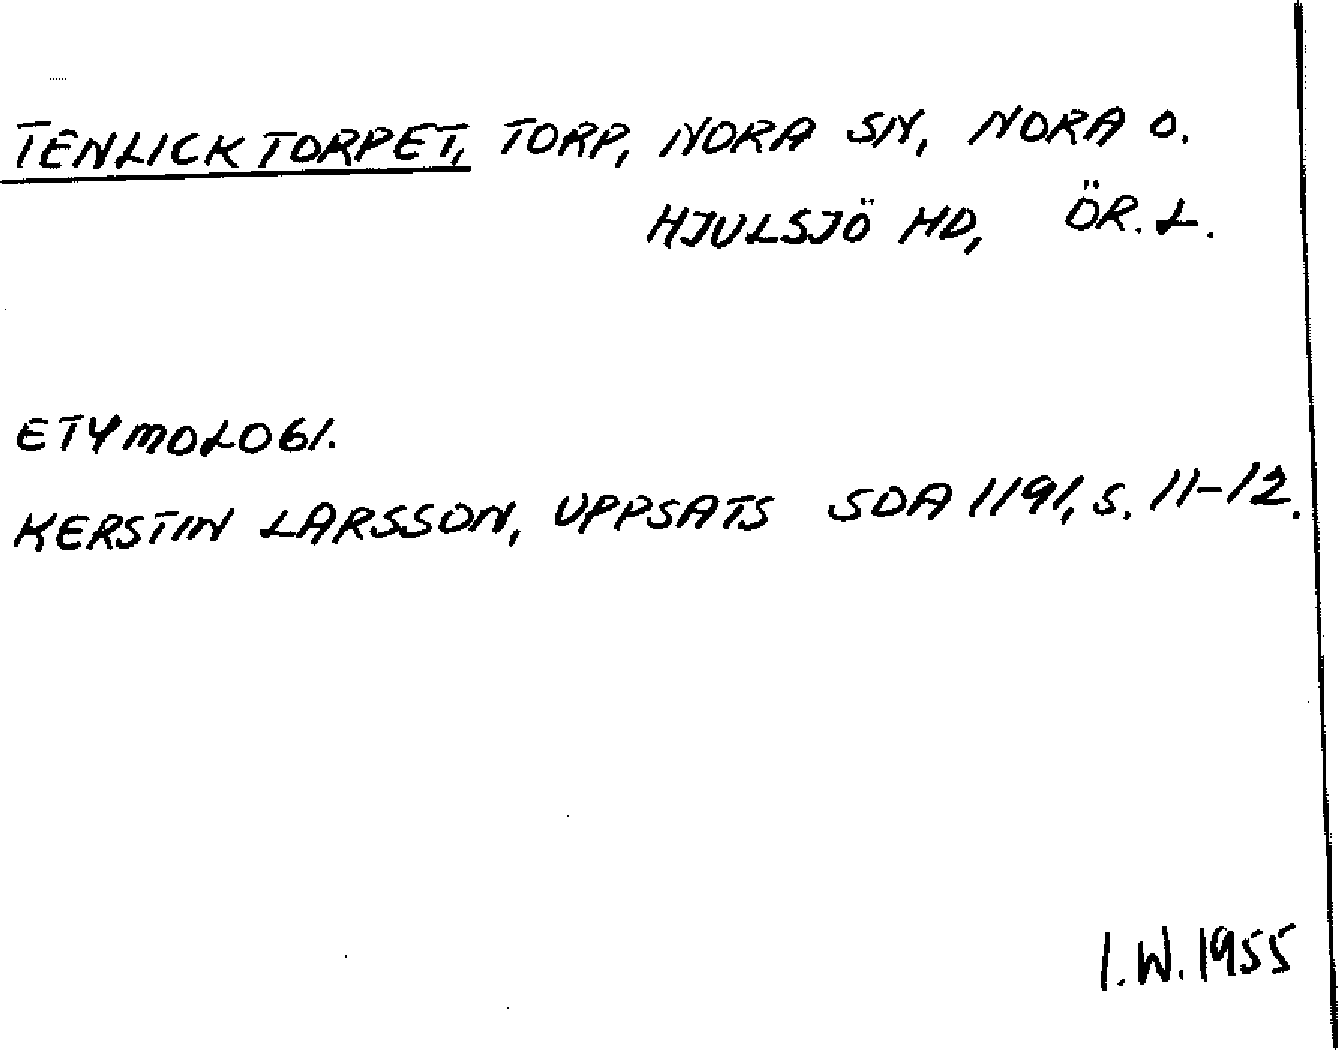 TENLICKTORPET, TORP, NORA SN, NORA O.
HJULSJÖ HD, ÖR. L.
ETYMOLOGI.
KERSTIN LARSSON, UPPSATS SOA 1191, S. 11-12.
I.W. 1955